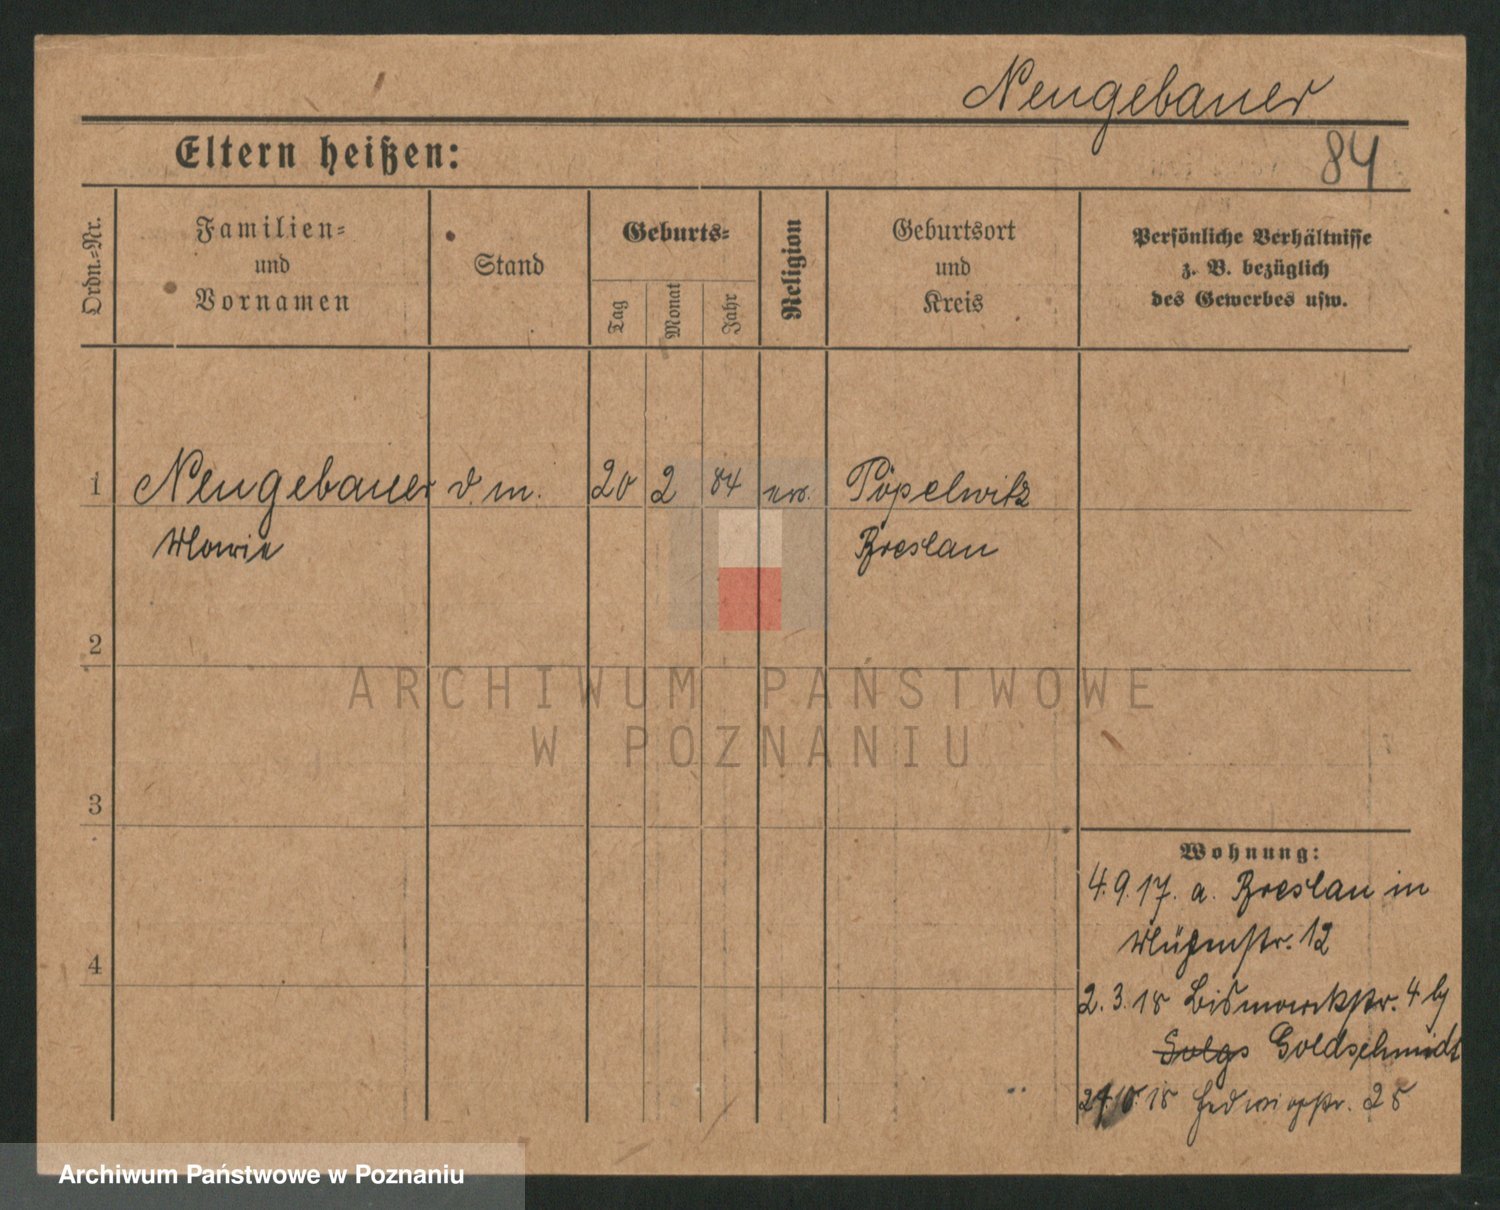 Neugebauer
Eltern heißen:
84
Ordn.-Nr.
Familien-
und
Vornamen
Stand
Geburts-
Tag
Monat
Jahr
Religion
Geburtsort
und
Kreis
Persönliche Verhältnisse
z. B. bezüglich
des Gewerbes usw.
1 Neugebauer d. m. 20 2 84 Pöpelwitz
Marie Breslau
2
3
4
Wohnung:
4.9.17. a. Breslau in
str. 12
2.3.18 Bismarckstr. 4 bj
Goldschmidt
24/10 18 Hedwigstr. 25
ARCHIWUM PAŃSTWOWE
W POZNANIU
Archiwum Państwowe w Poznaniu